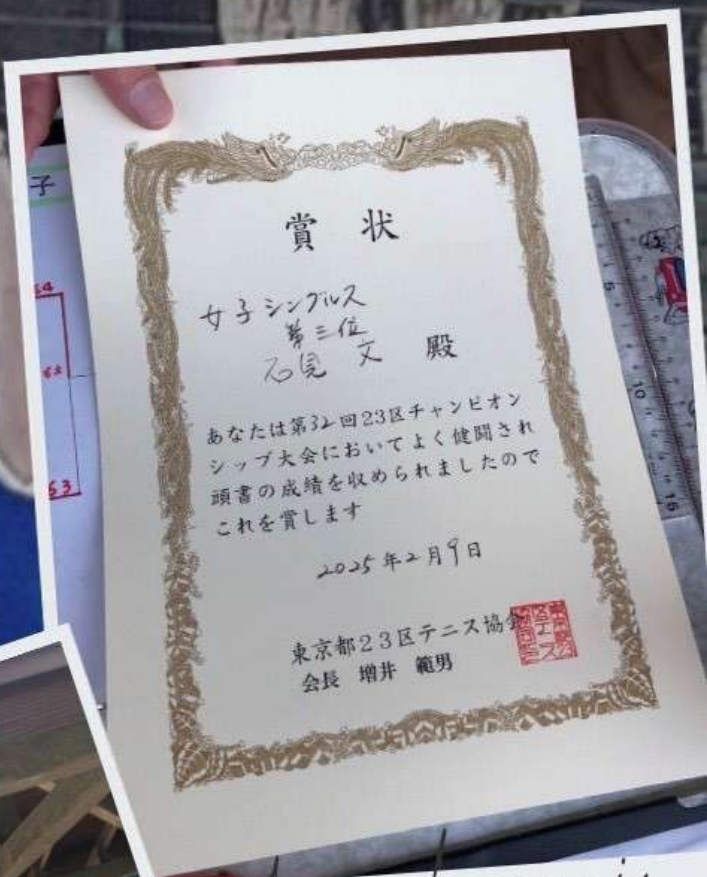 賞 状
女子 シングルス
第三位
石見 文 殿
あなたは第32回23区チャンピオン
シップ大会においてよく健闘され
頭書の成績を収められましたので
これを賞します
2025年2月9日
東京都23区テニス協会
会長 増井 範男
子
64
62
63
5
10
15